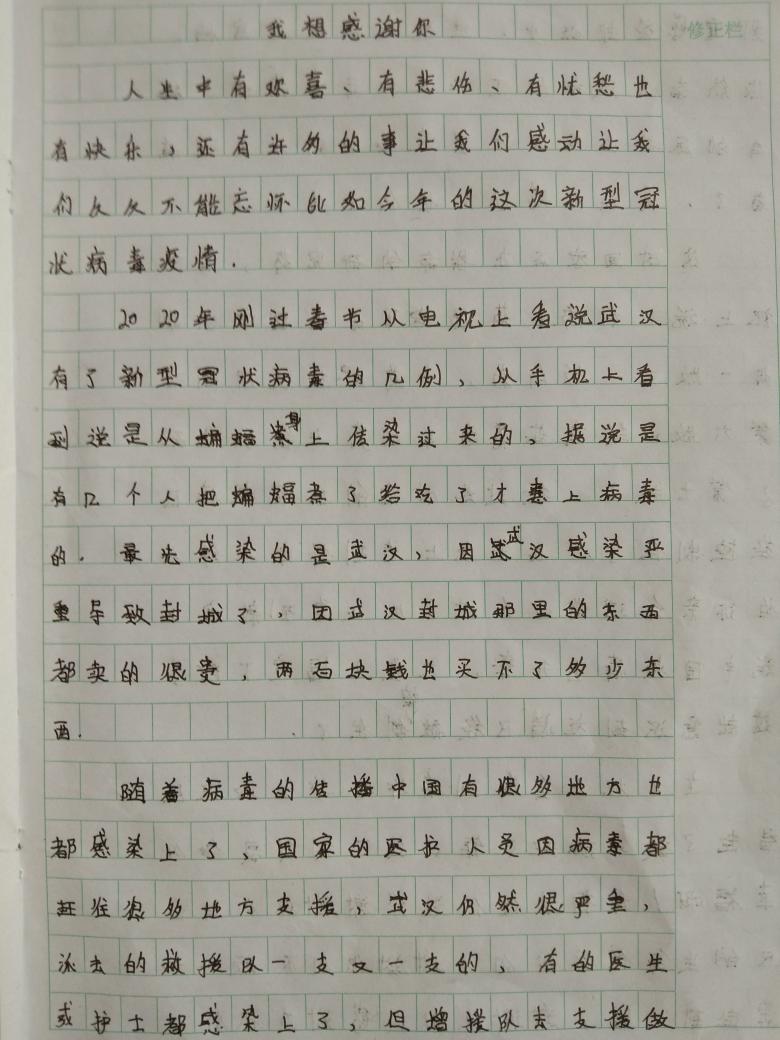 我想感谢你
修正栏
人生中有欢喜、有悲伤、有忧愁也
有快乐,还有许多的事让我们感动让我
们久久不能忘怀比如今年的这次新型冠
状病毒疫情.
2020年刚过春节从电视上看说武汉
有了新型冠状病毒的几例,从手机上看
到说是从蝙蝠身上传染过来的,据说是
有几个人把蝙蝠煮了给吃了才患上病毒
的.最先感染的是武汉,因武汉感染严
重导致封城了,因武汉封城那里的东西
都卖的很贵,两百块钱也买不了多少东
西.
随着病毒的传播中国有很多地方也
都感染上了、国家的医护人员因病毒都
赶往很多地方支援,武汉仍然很严重,
派去的救援队一支又一支的、有的医生
或护士都感染上了,但增援队去支援做